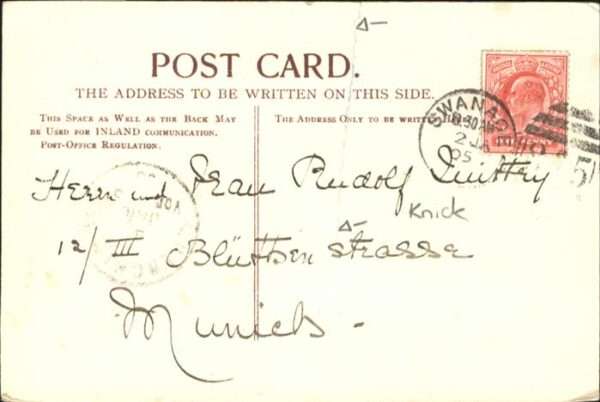 POST CARD.
THE ADDRESS TO BE WRITTEN ON THIS SIDE.
THIS SPACE AS WELL AS THE BACK MAY
BE USED FOR INLAND COMMUNICATION.
POST-OFFICE REGULATION.
THE ADDRESS ONLY TO BE
SWANAGE
2 JA
05
Herrn und Frau Rudolf
Knick
12/III Blüthen strasse
Munich.